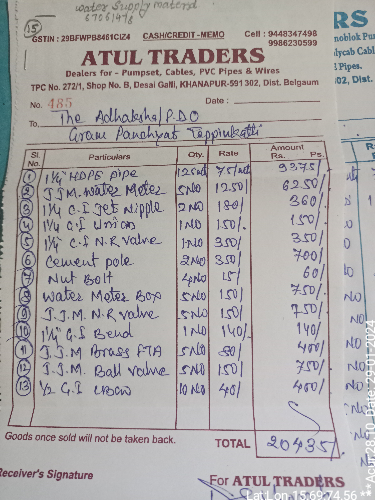 water supply material
67061478
15
GSTIN : 29BFWPB8461C1Z4 CASH/CREDIT-MEMO Cell : 9448347498
9986230599
ATUL TRADERS
Dealers for - Pumpset, Cables, PVC Pipes & Wires
TPC No. 272/1, Shop No. B, Desai Galli, KHANAPUR-591 302, Dist. Belgaum
No. 485 Date :
To, The Adhaksha/P.D.O
Gram Panchyat
Sl. No. Particulars Qty. Rate Amount Rs. Ps.
1 1¼" HDPE pipe 125mtr 75/mtr 9375/-
2 J.J.M. water Meter 5 NO 1250/- 6250/-
3 1¼ G.I Jet Nipple 2 NO 180/- 360/-
4 1¼ G.I Union 1 NO 150/- 150/-
5 1¼ G.I N.R valve 1 NO 350/- 350/-
6 Cement pole 2 NO 350/- 700/-
7 Nut Bolt 4 NO 15/- 60/-
8 Water Meter Box 5 NO 150/- 750/-
9 J.J.M. N.R valve 5 NO 150/- 750/-
10 1¼" G.I Bend 1 NO 140/- 140/-
11 J.J.M Brass FTA 5 NO 80/- 400/-
12 J.J.M. Ball valve 5 NO 150/- 750/-
13 1/2 G.I Elbow 10 NO 40/- 400/-
Goods once sold will not be taken back. TOTAL 20435/-
Receiver's Signature For ATUL TRADERS
RS
noblok Pu
lycab Cabl
Pipes.
02, Dist.
Lat Lon 15.69 74.56